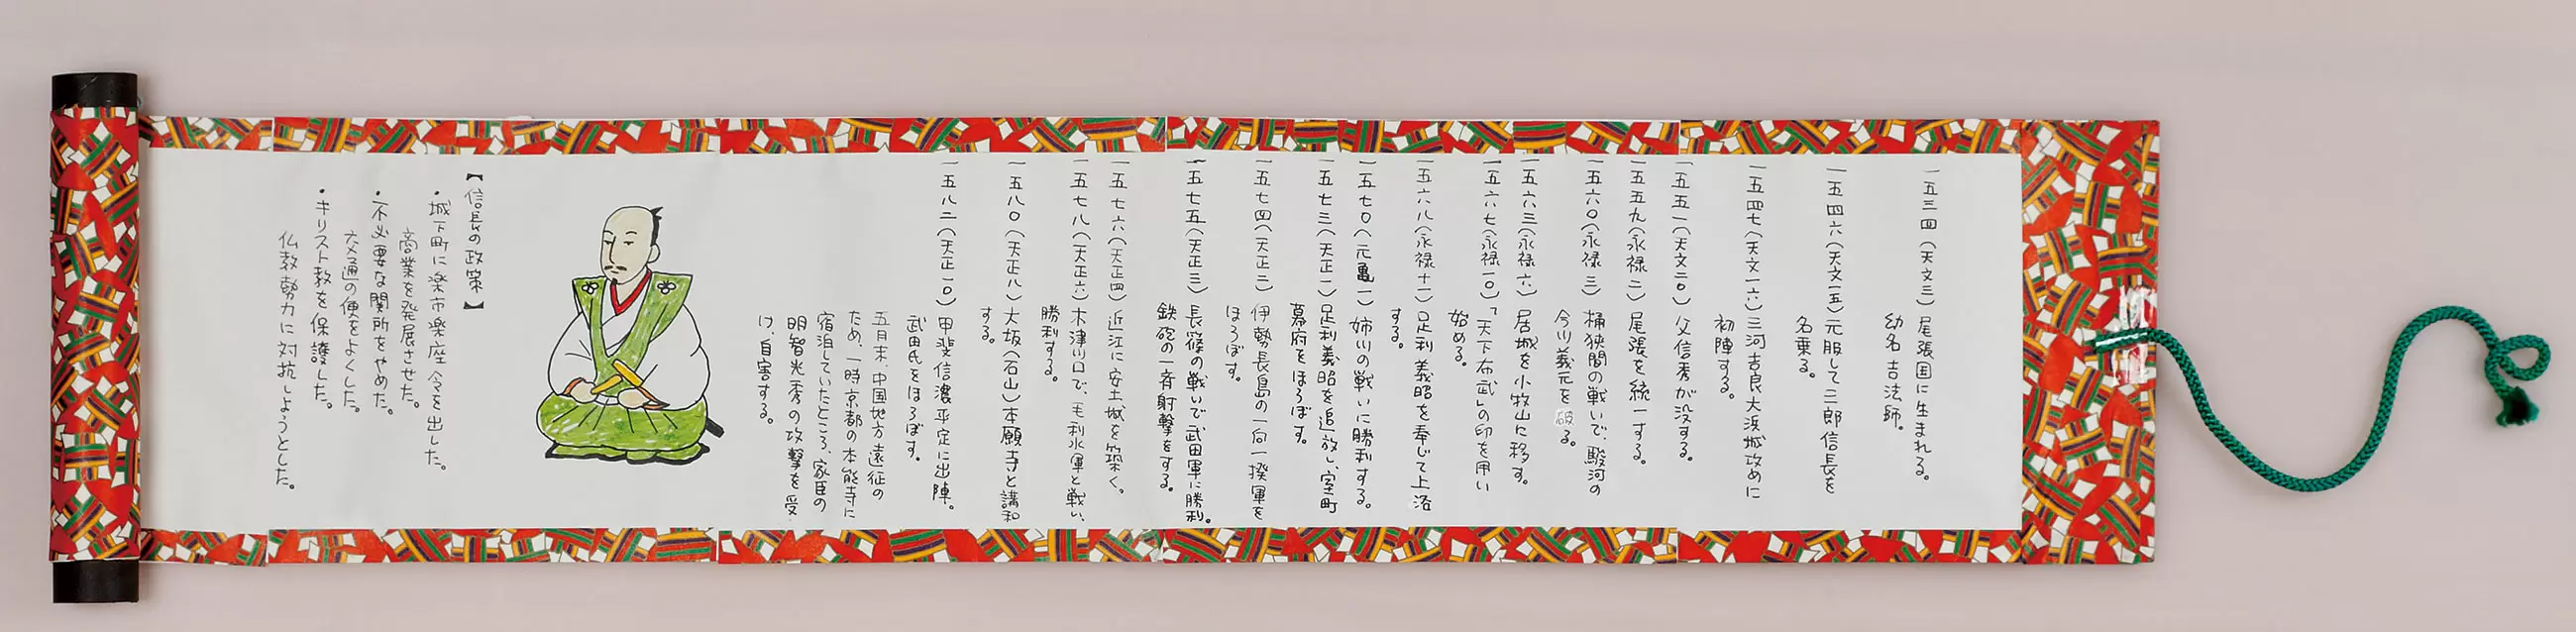 一五三四（天文三）尾張国に生まれる。
幼名 吉法師。
一五四六（天文一五）元服して三郎信長を
名乗る。
一五四七（天文一六）三河吉良大浜城攻めに
初陣する。
一五五一（天文二〇）父信秀が没する。
一五五九（永禄二）尾張を統一する。
一五六〇（永禄三）桶狭間の戦いで、駿河の
今川義元を破る。
一五六三（永禄六）居城を小牧山に移す。
一五六七（永禄一〇）「天下布武」の印を用い
始める。
一五六八（永禄十一）足利義昭を奉じて上洛
する。
一五七〇（元亀一）姉川の戦いに勝利する。
一五七三（天正一）足利義昭を追放し、室町
幕府をほろぼす。
一五七四（天正二）伊勢長島の一向一揆軍を
ほろぼす。
一五七五（天正三）長篠の戦いで武田軍に勝利。
鉄砲の一斉射撃をする。
一五七六（天正四）近江に安土城を築く。
一五七八（天正六）木津川口で、毛利水軍と戦い、
勝利する。
一五八〇（天正八）大坂（石山）本願寺と講和
する。
一五八二（天正一〇）甲斐信濃平定に出陣。
武田氏をほろぼす。
五月末、中国地方遠征の
ため、一時京都の本能寺に
宿泊していたところ、家臣の
明智光秀の攻撃を受
け、自害する。
【信長の政策】
・城下町に楽市楽座令を出した。
商業を発展させた。
・不必要な関所をやめた。
交通の便をよくした。
・キリスト教を保護した。
仏教勢力に対抗しようとした。